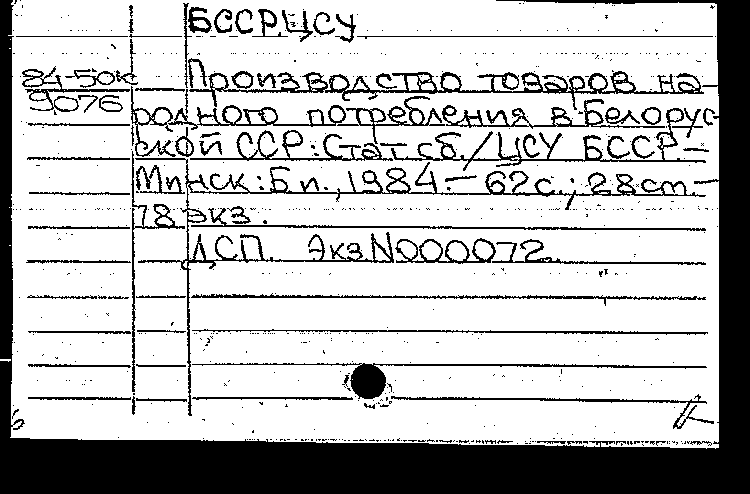 БССР.ЦСУ.
84-50к
9076
Производство товаров на-
родного потребления в Белорус-
ской ССР: Стат. сб. / ЦСУ БССР. –
Минск: Б и., 1984. – 62 с.; 28 cm. –
78 экз.
ДСП. Экз N000072.